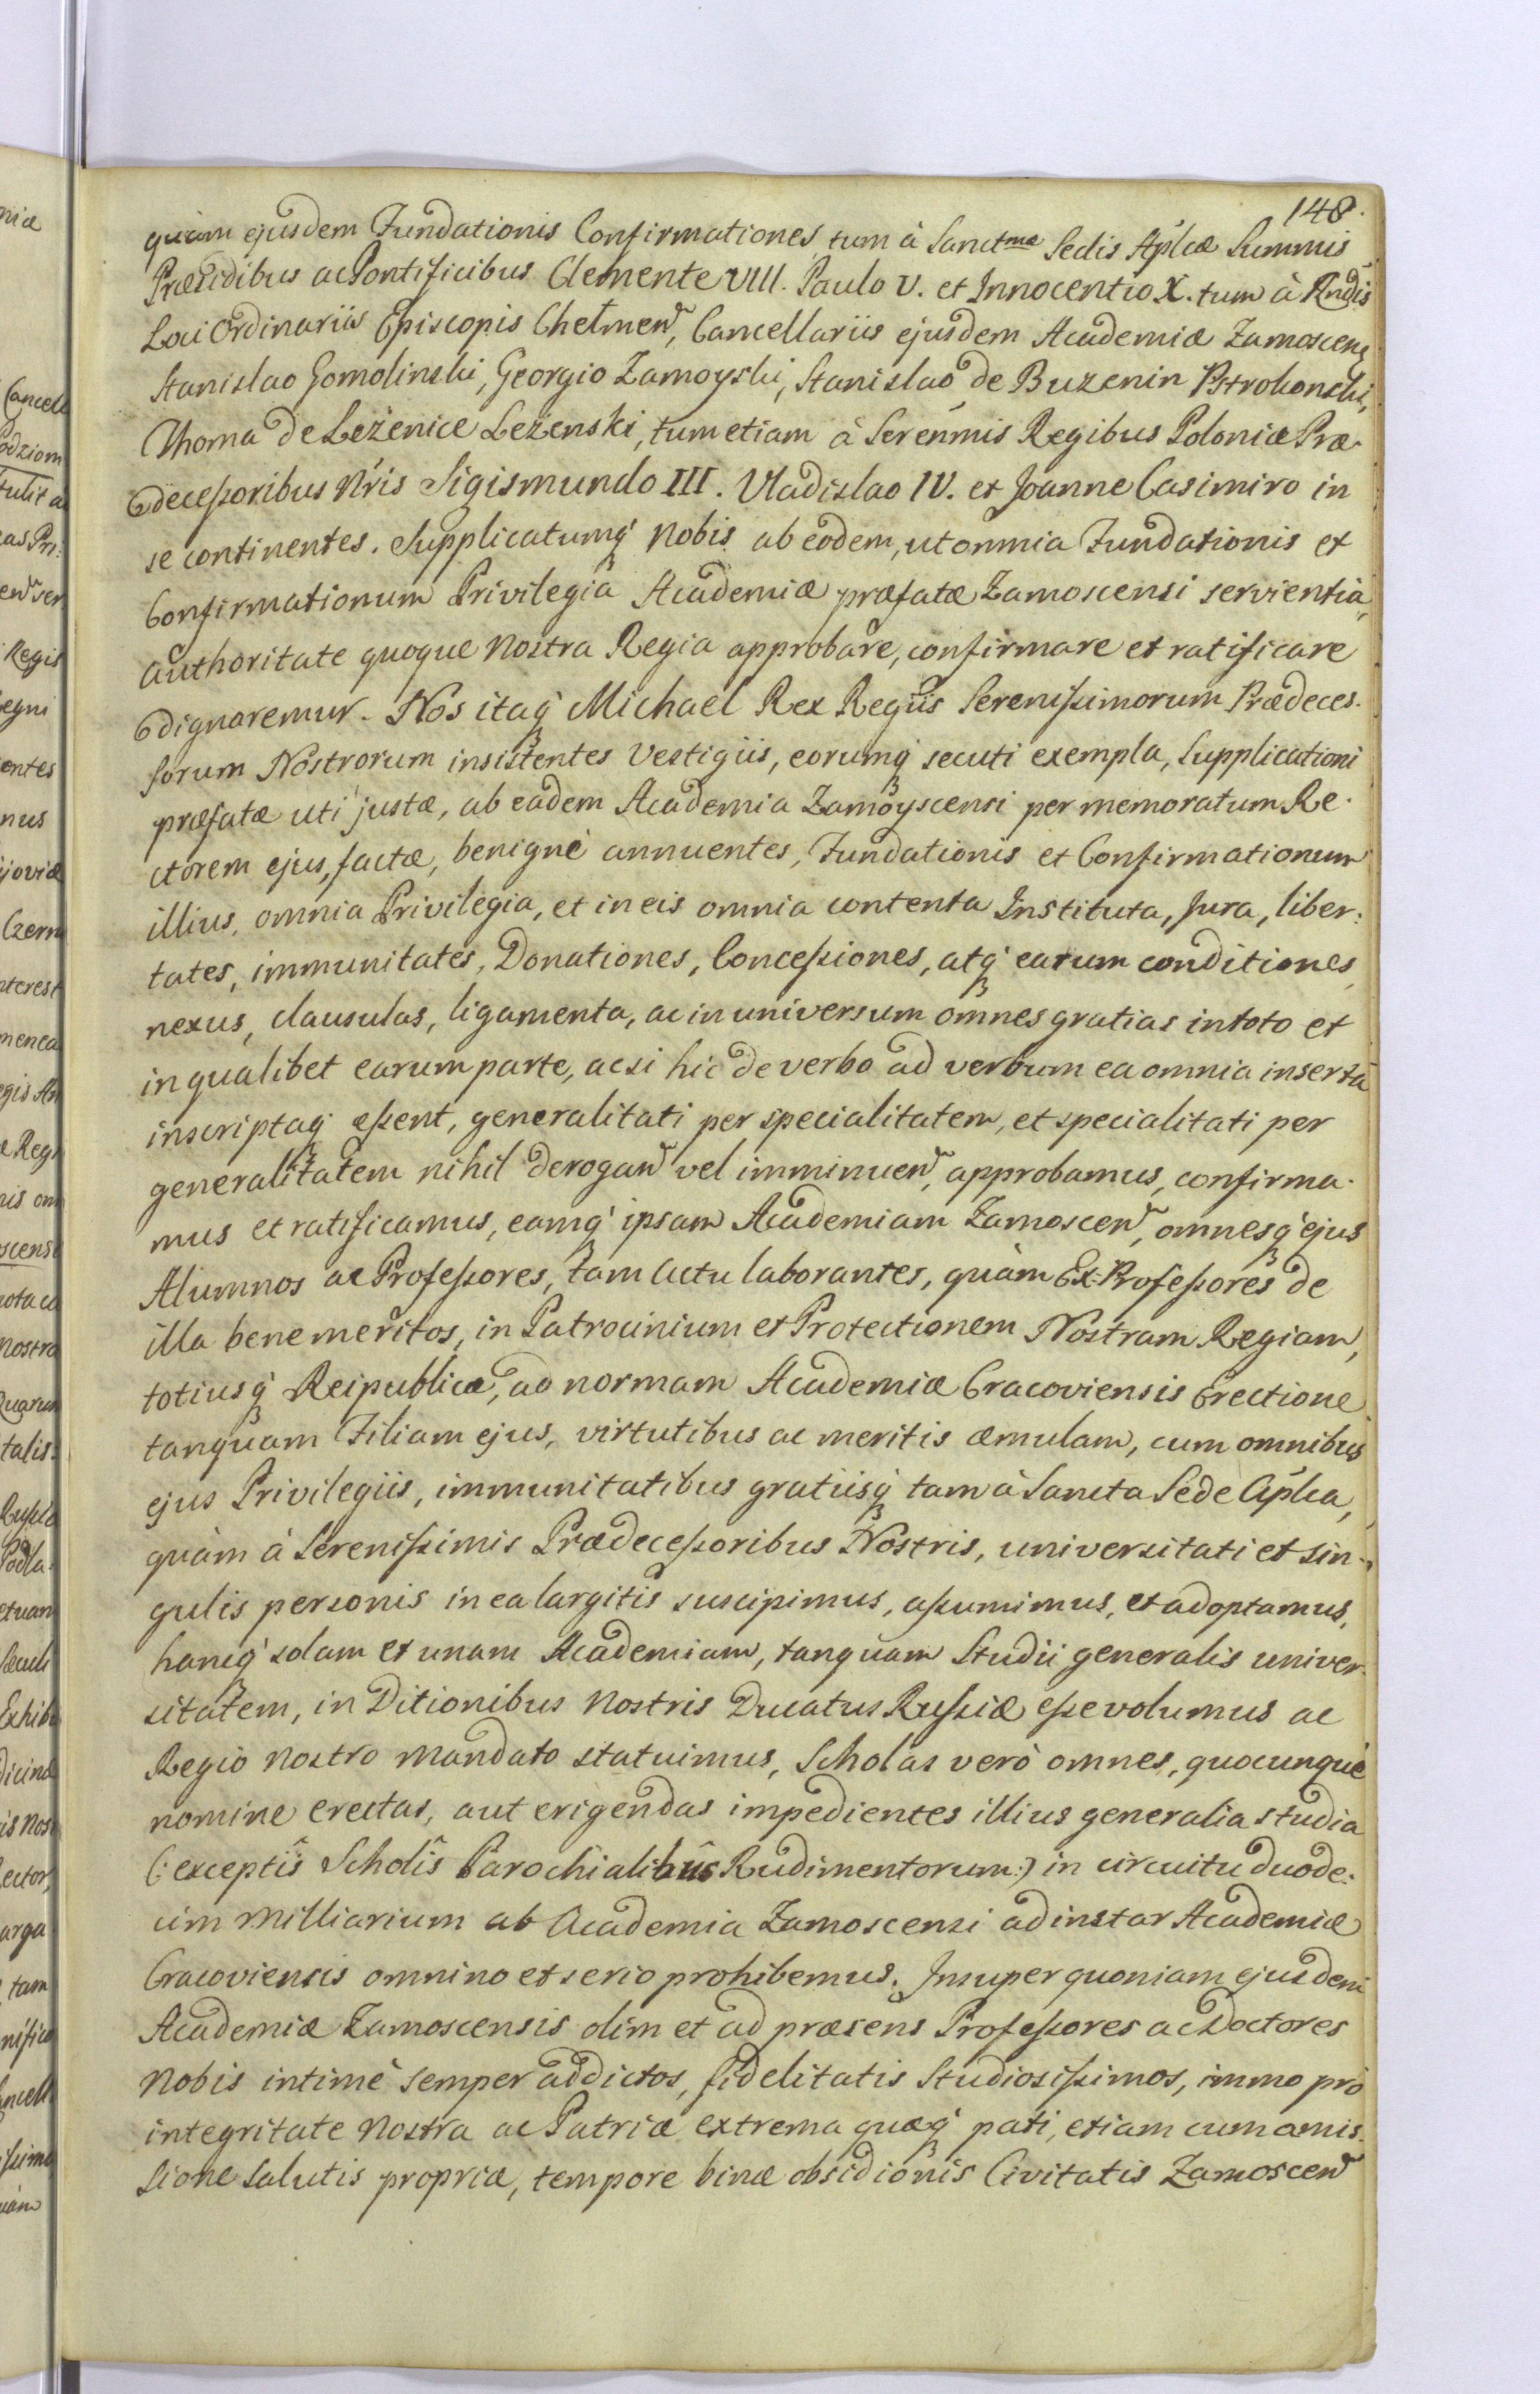 148.
quàm ejusdem Fundationis Confirmationes, tum à Sanctmæ Sedis Aplcæ Summis
Præsidibus ac Pontificibus Clemente VIII. Paulo V. et Innocentio X. tum à Rndis
Loci Ordinariis Episcopis Chelmen, Cancellariis ejusdem Academiæ Zamoscens
Stanislao Gomolinski, Georgio Zamoyski, Stanislao de Buzenin Pstrokonski,
Thoma de Leżenice Leżenski, tum etiam à Serenmis Regibus Poloniæ Præ-
decessoribus Nris Sigismundo III. Vladislao IV. et Joanne Casimiro in
se continentes. Supplicatumq nobis ab eodem, ut omnia Fundationis et
Confirmationum Privilegia Academiæ præfatæ Zamoscensi servientia,
authoritate quoque Nostra Regia approbare, confirmare et ratificare
dignaremur. Nos itaq Michaël Rex Regiis Serenissimorum Prædeces-
sorum Nostrorum insistentes vestigiis, eorumq secuti exempla, supplicationi
præfatæ uti justæ, ab eadem Academia Zamoyscensi per memoratum Re-
ctorem ejus, factæ, benignè annuentes, Fundationis et Confirmationum
illius, omnia Privilegia, et in eis omnia contenta Instituta, Jura, liber:
tates, immunitates, Donationes, Concessiones, atq earum conditiones,
nexus, clausulas, ligamenta, ac in universum omnes gratias in toto et
in qualibet earum parte, acsi hic de verbo ad verbum ea omnia inserta
inscriptaq essent, generalitati per specialitatem, et specialitati per
generalitatem nihil derogan vel imminuen, approbamus, confirma-
mus et ratificamus, eamq ipsam Academiam Zamoscen, omnesq ejus
Alumnos ac Professores, tam actu laborantes, quàm Ex-Professores de
illa bene meritos, in Patrocinium et Protectionem Nostram Regiam,
totiusq Reipublicæ, ad normam Academiæ Cracoviensis Erectione
tanquam Filiam ejus, virtutibus ac meritis æmulam, cum omnibus
ejus Privilegiis, immunitatibus gratiisq tam à Sancta Sede Aplca,
quàm à Serenissimis Prædecessoribus Nostris, universitati et sin-
gulis personis in ea largitis suscipimus, assumimus, et adoptamus,
hancq solam et unam Academiam, tanquam Studii generalis univer-
sitatem, in Ditionibus Nostris Ducatus Russiæ esse volumus ac
Regio nostro mandato statuimus, Scholas verò omnes, quocunque
nomine erectas, aut erigendas impedientes illius generalia studia
(: exceptîs Scholîs Parochialibus Rudimentorum :) in circuitu duode:
cim milliarium ab Academia Zamoscensi ad instar Academiæ
Cracoviensis omnino et serio prohibemus. Insuper quoniam ejusdem
Academiæ Zamoscensis olim et ad præsens Professores ac Doctores
Nobis intimè semper addictos, fidelitatis Studiosissimos, immo pro
integritate nostra ac Patriæ extrema quæq pati, etiam cum amis-
sione salutis propriæ, tempore binæ obsidionis Civitatis Zamoscen